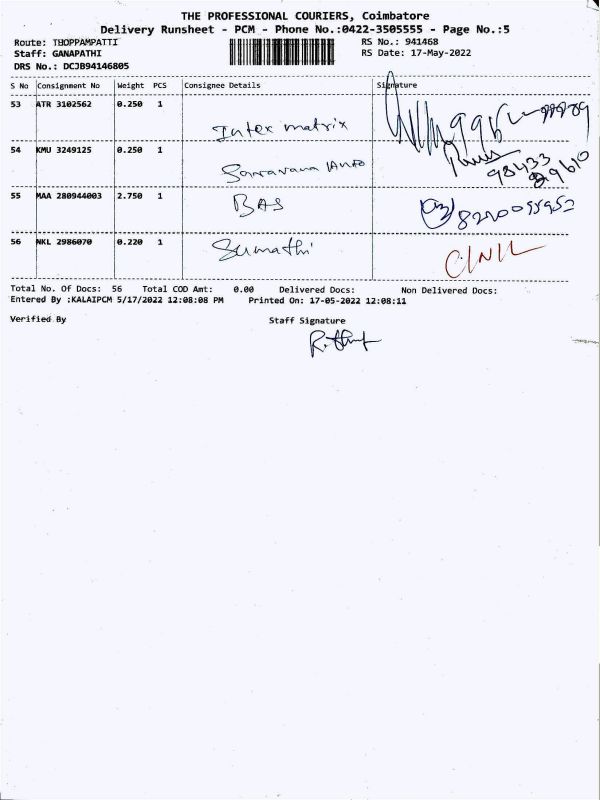 THE PROFESSIONAL COURIERS, Coimbatore
Delivery Runsheet - PCM - Phone No.:0422-3505555 - Page No.:5
Route: THOPPAMPATTI RS No.: 941468
Staff: GANAPATHI RS Date: 17-May-2022
DRS No.: DCJB94146805
S No Consignment No Weight PCS Consignee Details Signature
53 ATR 3102562 0.250 1 Intex matrix
54 KMU 3249125 0.250 1 Saaravana Auto 98433
55 MAA 280944003 2.750 1 BAS
56 NKL 2986070 0.220 1 Sumathi
Total No. Of Docs: 56 Total COD Amt: 0.00 Delivered Docs: Non Delivered Docs:
Entered By :KALAIPCM 5/17/2022 12:08:08 PM Printed On: 17-05-2022 12:08:11
Verified By Staff Signature